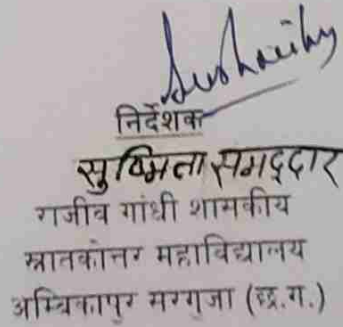 निर्देशक
सुष्मिता समद्दार
राजीव गांधी शासकीय
स्नातकोत्तर महाविद्यालय
अम्बिकापुर सरगुजा (छ.ग.)